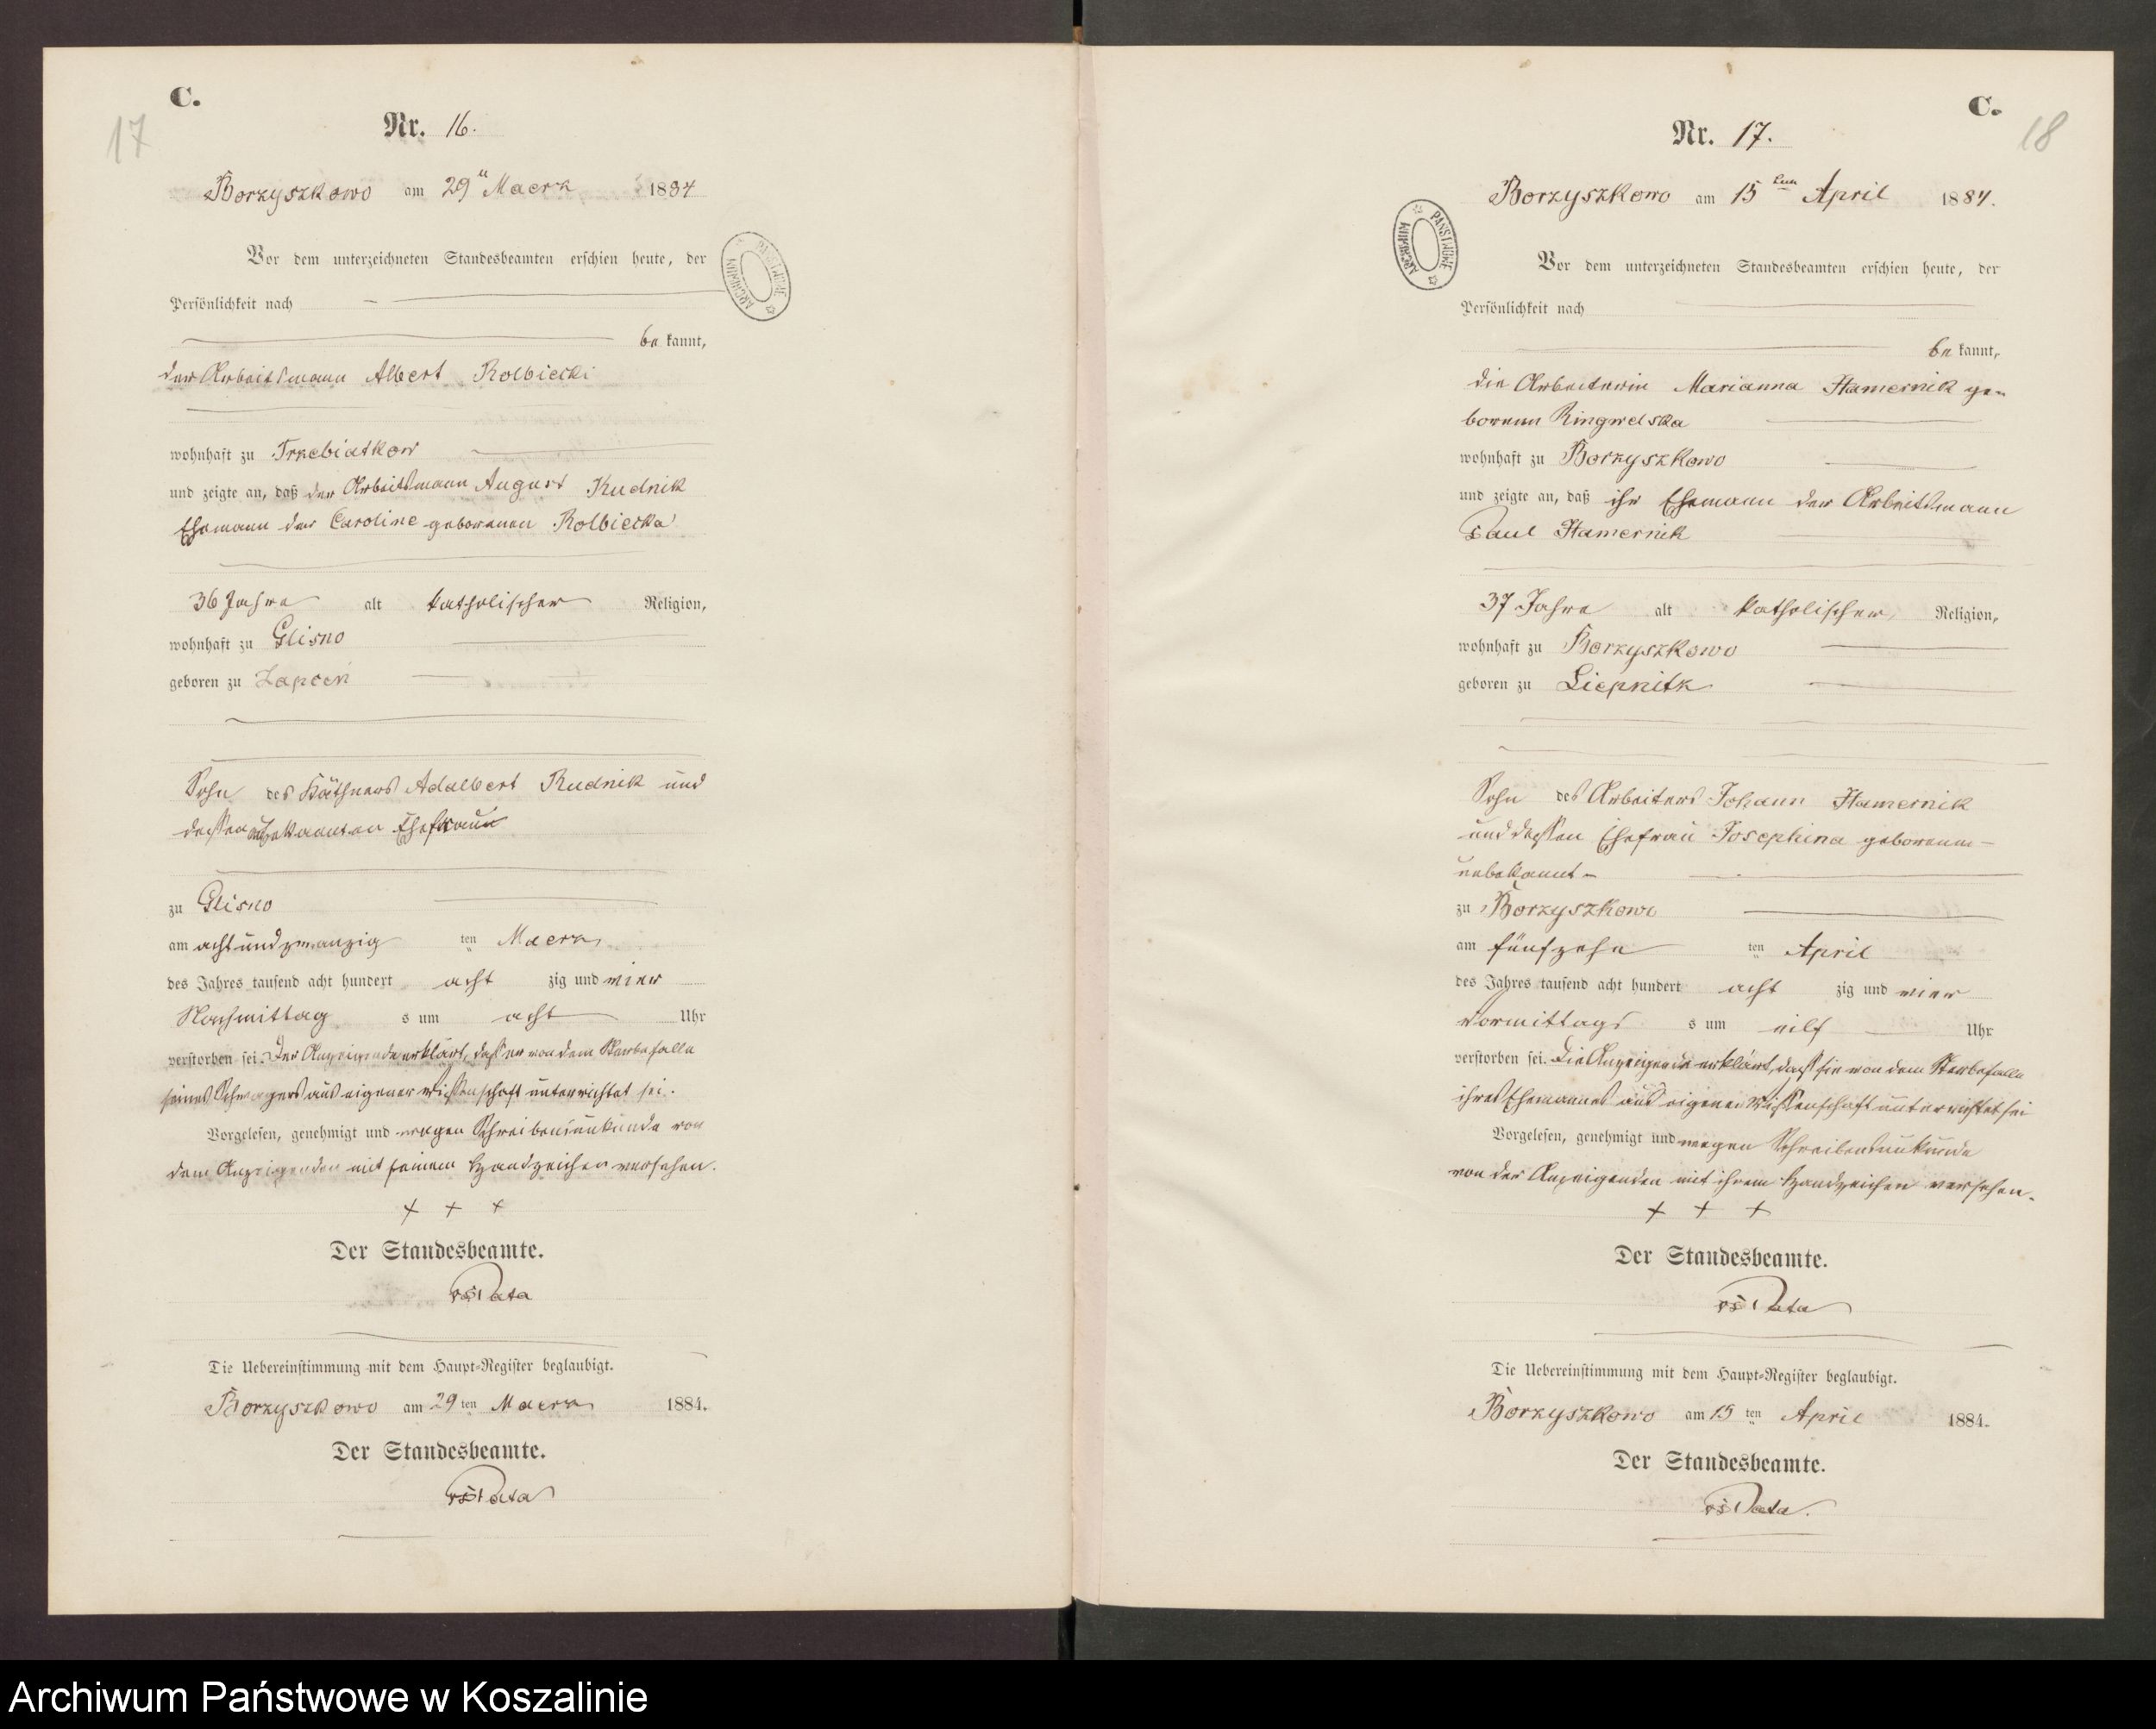 C.
17
Nr. 16.
Borzyszkowo am 29 Maerz 1884
Vor dem unterzeichneten Standesbeamten erschien heute, der
Persönlichkeit nach
be kannt,
der Arbeitsmann Albert Kolbiecki
wohnhaft zu Trzebiatkow
und zeigte an, daß der Arbeitsmann August Rudnik
Ehemann der Caroline geborenen Kolbiecka
36 Jahre alt katholischer Religion,
wohnhaft zu Glisno
geboren zu Zapcen
Sohn des Käthners Adalbert Rudnik und
dessen unbekannten Ehefrau
zu Glisno
am achtundzwanzig ten Maerz
des Jahres tausend acht hundert acht zig und vier
Nachmittag s um acht Uhr
verstorben sei. Der Anzeigende erklärt, dass er von dem Sterbefalle
seines Schwagers aus eigener Wissenschaft unterrichtet sei.
Vorgelesen, genehmigt und wegen Schreibensunkunde von
dem Anzeigenden mit seinem Handzeichen versehen.
+ + +
Der Standesbeamte.
Pata
Die Uebereinstimmung mit dem Haupt-Register beglaubigt.
Borzyszkowo am 29 ten Maerz 1884.
Der Standesbeamte.
Pata
C.
18
Nr. 17.
Borzyszkowo am 15 ten April 1884.
ARCHIWUM PAŃSTWOWE
Vor dem unterzeichneten Standesbeamten erschien heute, der
Persönlichkeit nach
be kannt,
die Arbeiterin Marianna Hamernik ge-
borene Ringwelska
wohnhaft zu Borzyszkowo
und zeigte an, daß ihr Ehemann der Arbeitsmann
Paul Hamernik
37 Jahre alt katholischer Religion,
wohnhaft zu Borzyszkowo
geboren zu Liepnitz
Sohn des Arbeiters Johann Hamernik
und dessen Ehefrau Josephina geborene -
unbekannt -
zu Borzyszkowo
am fünfzehn ten April
des Jahres tausend acht hundert acht zig und vier
Vormittags s um eilf Uhr
verstorben sei. Die Anzeigende erklärt, dass sie von dem Sterbefalle
ihres Ehemannes aus eigener Wissenschaft unterrichtet sei
Vorgelesen, genehmigt und wegen Schreibensunkunde
von der Anzeigenden mit ihrem Handzeichen versehen.
+ + +
Der Standesbeamte.
Pata
Die Uebereinstimmung mit dem Haupt-Register beglaubigt.
Borzyszkowo am 15 ten April 1884.
Der Standesbeamte.
Pata.
Archiwum Państwowe w Koszalinie